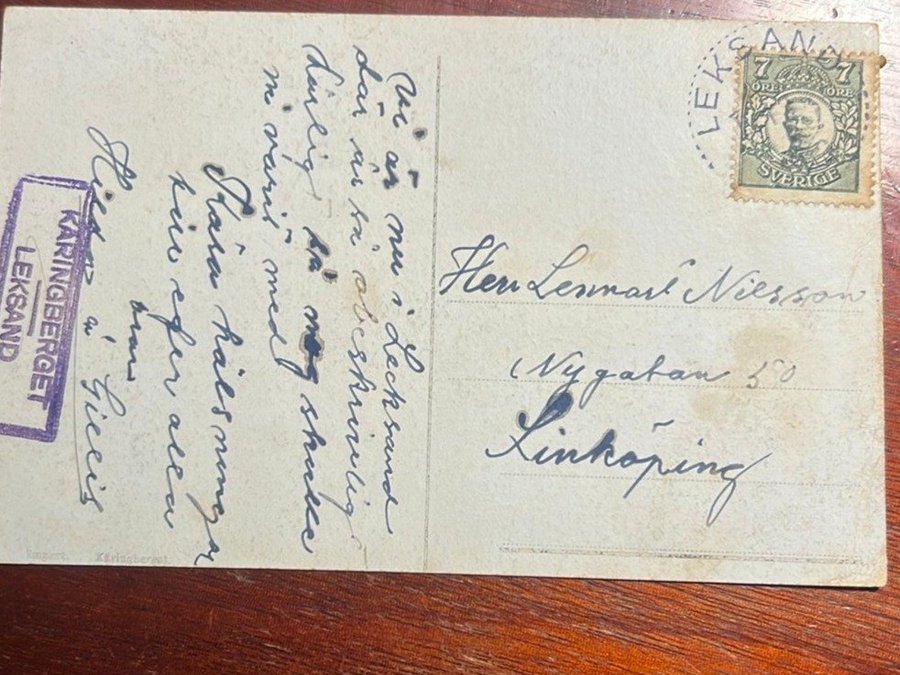 Vi är nu i Lecksand
där är så obeskrivligt
härlig så nog skulle
ni varit med
Kära hälsningar
till eder alla
från
Hildor o Gillis
LEKSAND
7 7
ÖRE ÖRE
SVERIGE
Herr Lennart Nilsson
Nygatan 50
Linköping
KÄRINGBERGET
LEKSAND
Käringberget